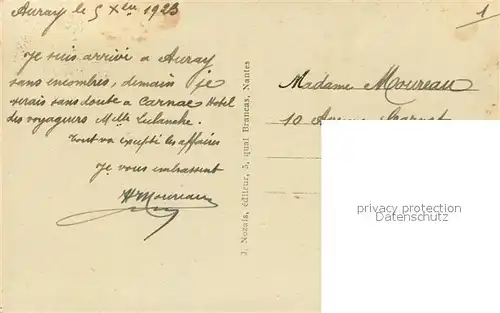 Auray le 5 Xbre 1923
1
Je suis arrivé a Auray
sans encombres, demain je
serais sans doute a Carnac Hotel
des voyageurs Mlle Lalanche.
Tout va excepté les affaires
Je vous embrassent
HMoureau
J. Nozais, éditeur, 5, quai Brancas, Nantes
Madame Moureau
10
privacy protection
Privatsphäre Schutz